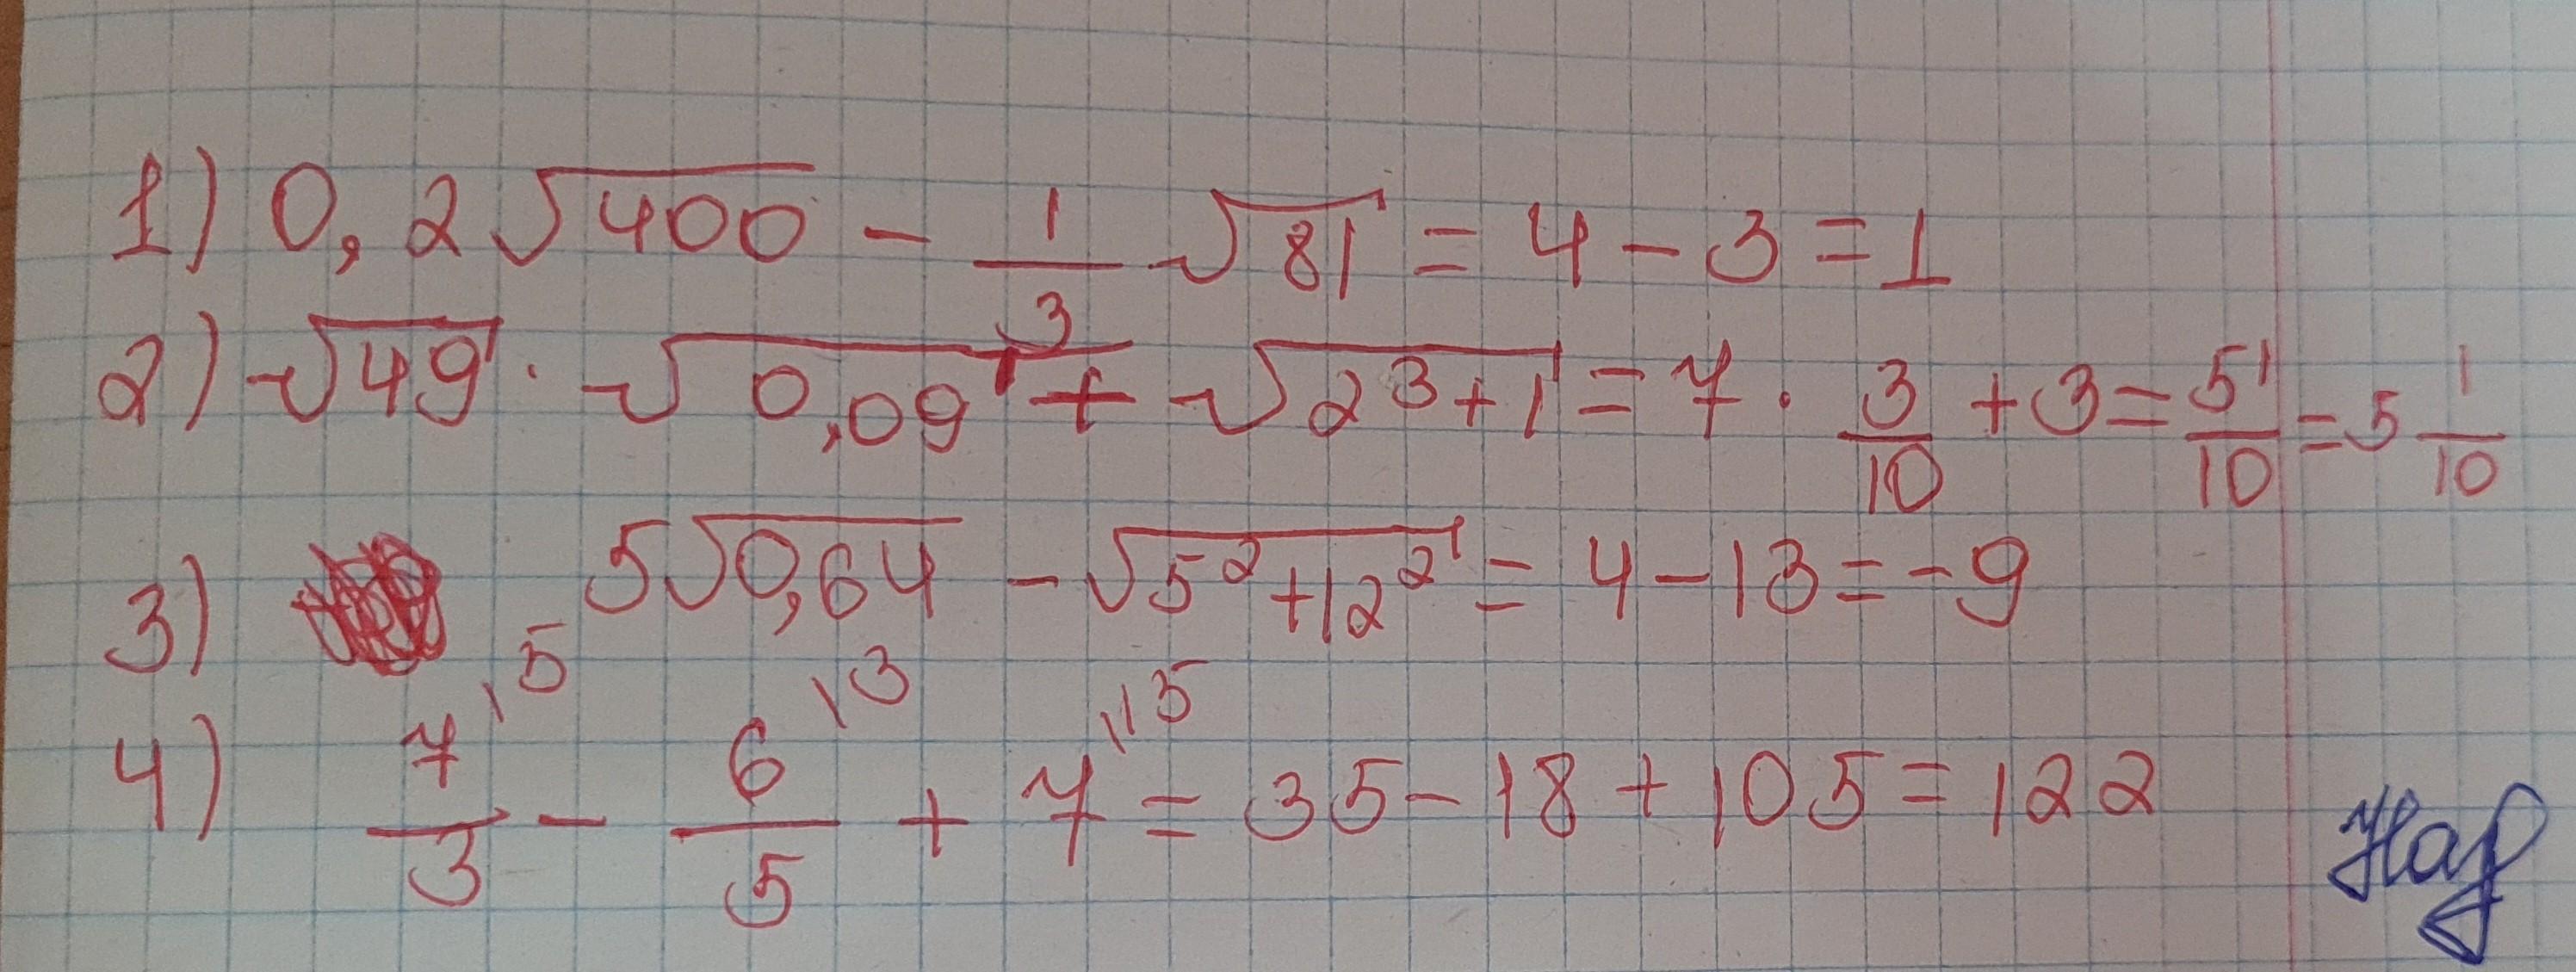 1) 0,2√400 - 1/3 √81 = 4 - 3 = 1
2) √49 · √0,09 + √(2³+1) = 7 · 3/10 + 3 = 51/10 = 5 1/10
3) 5√0,64 - √(5²+12²) = 4 - 13 = -9
4) 7/3 \5 - 6/5 \3 + 7 \15 = 35 - 18 + 105 = 122